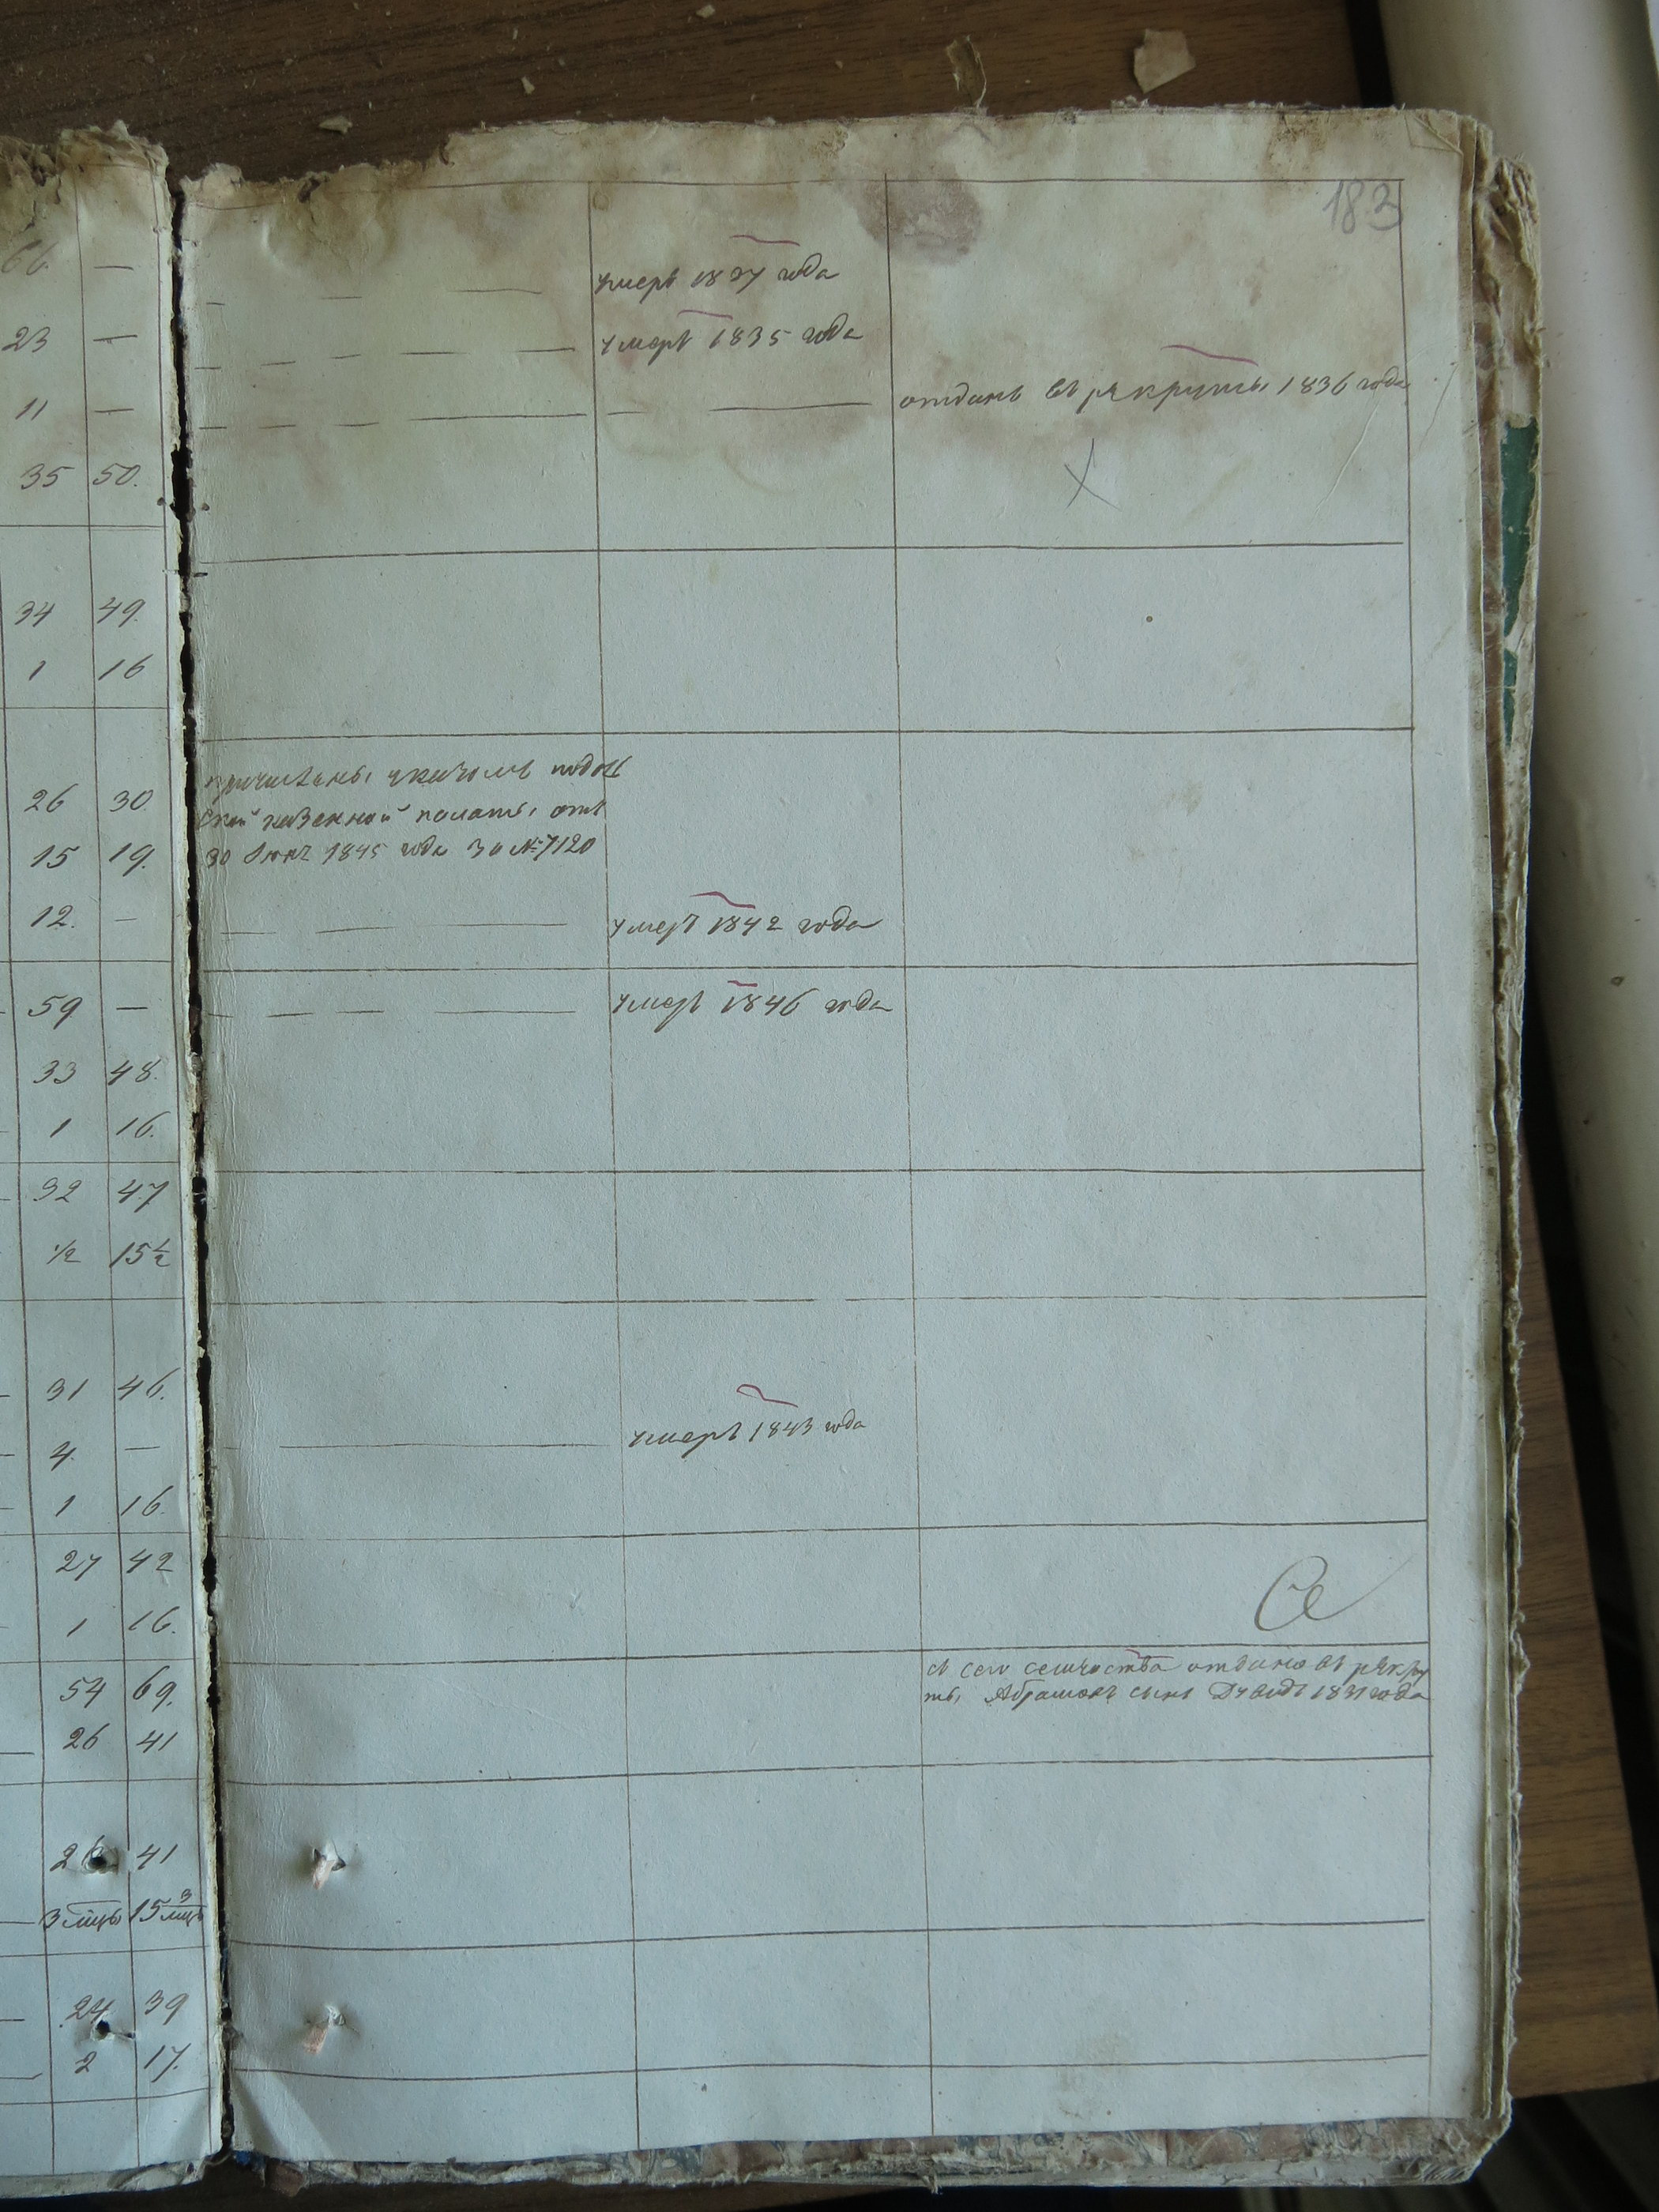 183
66. — умеръ 1837 года
23 — умеръ 1835 года
11 — отданъ въ рекруты 1836 года
35 50.
34 49.
1 16
причислены указомъ подоль
26 30. ской казенной палаты отъ
15 19. 30 1845 года за № 7120
12. — умеръ 1842 года
59 — умеръ 1846 года
33 48.
1 16.
32 47
1/2 15 1/2
31 46.
4. — умеръ 1843 года
1 16.
27 42
1 16.
съ сего семейства отдано въ рекру
54 69. ты Абрамовъ сынъ Дувидъ года
26 41
26 41
3 мцы 15 3 мцы
24 39
2 17.